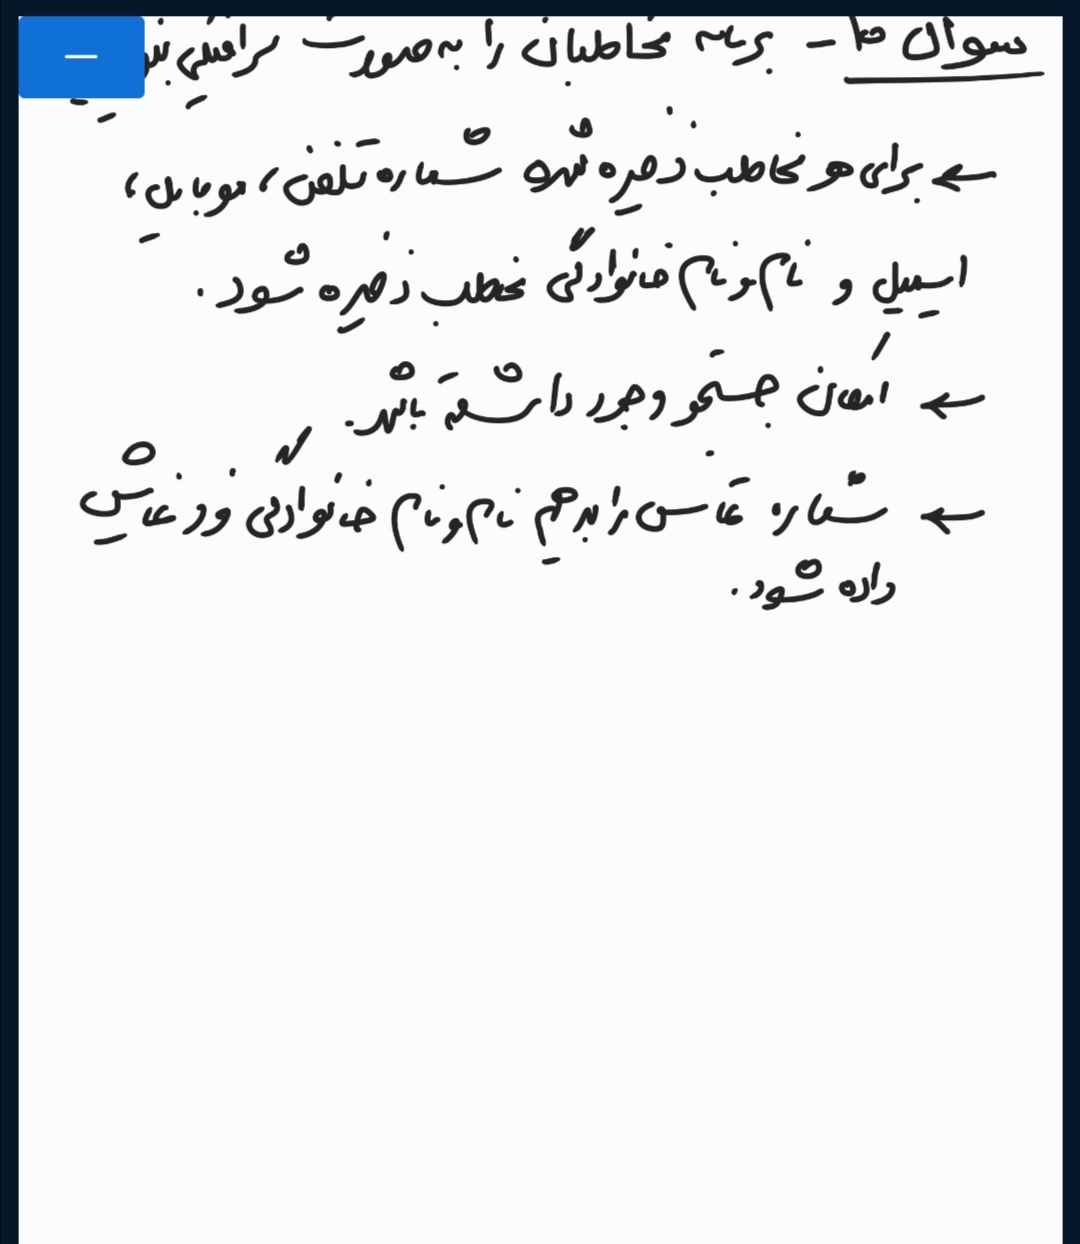 سوال ۲۰ - برنامه مخاطبان را به صورت گرافیکی
← برای هر مخاطب ذخیره شده شماره تلفن، موبایل،
ایمیل و نام و نام خانوادگی مخطب ذخیره شود.
← امکان جستجو وجود داشته باشد.
← شماره تماس را برحسب نام و نام خانوادگی فرد نمایش
داده شود.